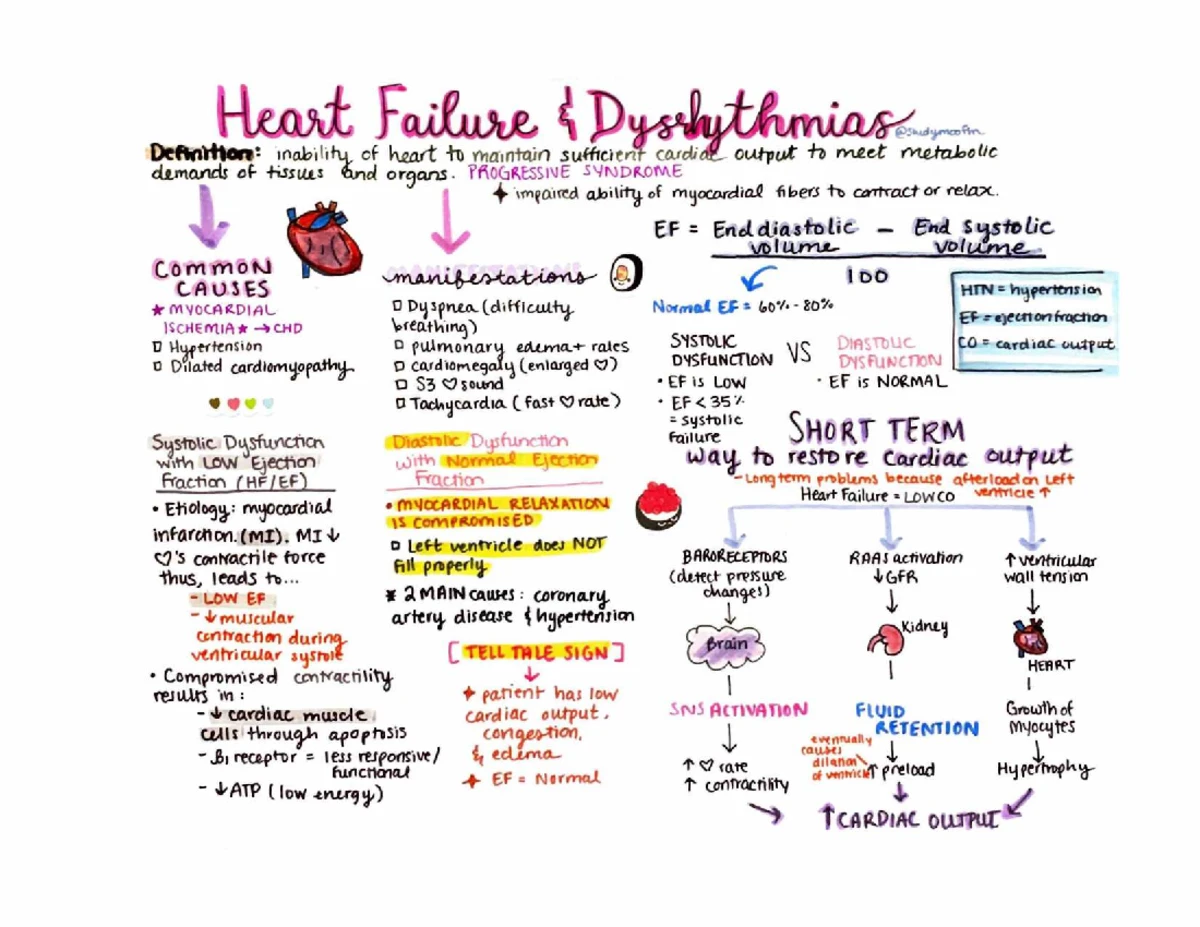 Heart Failure & Dysrhythmias
@studymcoftn
Definition: inability of heart to maintain sufficient cardiac output to meet metabolic
demands of tissues and organs. PROGRESSIVE SYNDROME
✦ impaired ability of myocardial fibers to contract or relax.
COMMON
CAUSES
★ MYOCARDIAL
ISCHEMIA★ → CHD
□ Hypertension
□ Dilated cardiomyopathy
manifestations
□ Dyspnea (difficulty
breathing)
□ pulmonary edema + rales
□ cardiomegaly (enlarged ♡)
□ S3 ♡ sound
□ Tachycardia (fast ♡ rate)
EF = End diastolic − End systolic
volume volume
100
Normal EF = 60% - 80%
HTN = hypertension
EF = ejection fraction
CO = cardiac output
SYSTOLIC
DYSFUNCTION
VS
DIASTOLIC
DYSFUNCTION
• EF is LOW
• EF < 35%
= systolic
failure
• EF is NORMAL
Systolic Dysfunction
with LOW Ejection
Fraction (HF/EF)
• Etiology: myocardial
infarction. (MI). MI ↓
♡'s contractile force
thus, leads to...
- LOW EF
- ↓ muscular
contraction during
ventricular systole
• Compromised contractility
results in:
- ↓ cardiac muscle
cells through apoptosis
- β1 receptor = less responsive/
functional
- ↓ ATP (low energy)
Diastolic Dysfunction
with Normal Ejection
Fraction
• MYOCARDIAL RELAXATION
IS COMPROMISED
□ Left ventricle does NOT
fill properly
* 2 MAIN causes: coronary
artery disease & hypertension
[TELL TALE SIGN]
↓
✦ patient has low
cardiac output,
congestion,
& edema
✦ EF = Normal
SHORT TERM
way to restore cardiac output
- Long term problems because afterload on left
ventricle ↑
Heart Failure = LOW CO
BARORECEPTORS
(detect pressure
changes)
Brain
SNS ACTIVATION
↑ ♡ rate
↑ contractility
RAAS activation
↓ GFR
Kidney
FLUID
RETENTION
eventually
causes
dilation
of ventricle
↑ preload
↑ ventricular
wall tension
HEART
Growth of
Myocytes
Hypertrophy
↑ CARDIAC OUTPUT